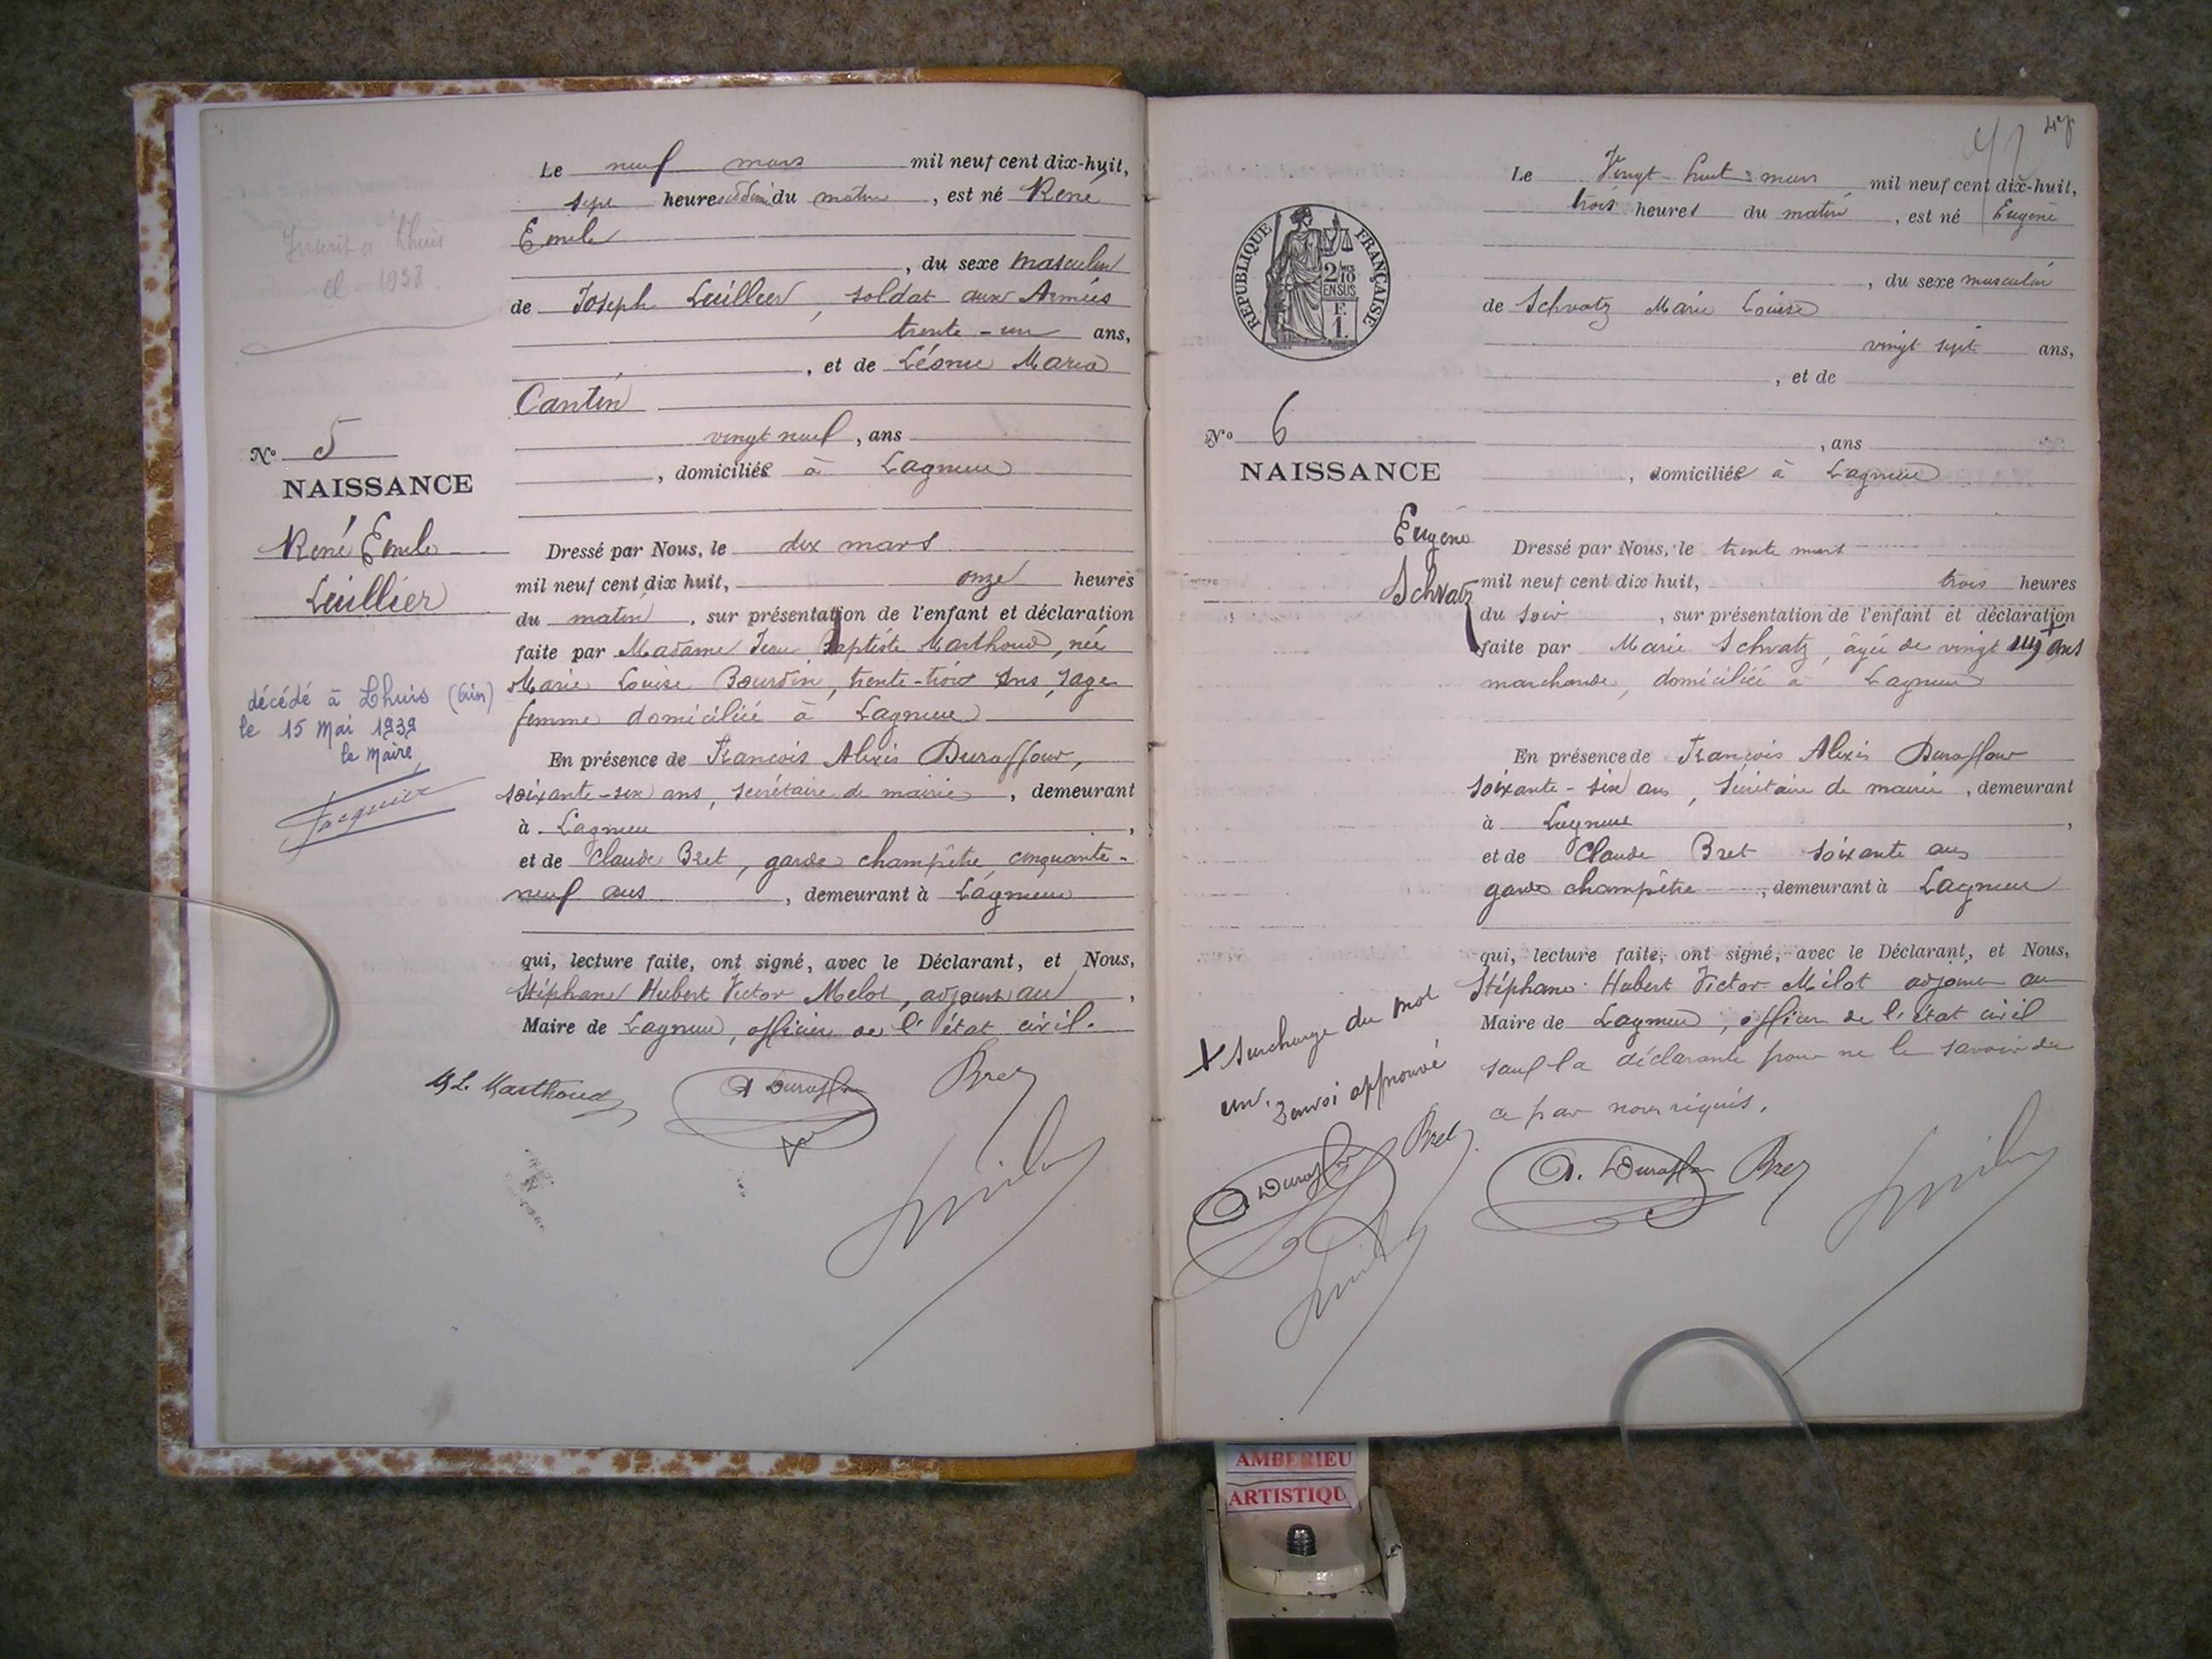 Le neuf mars mil neuf cent dix-huit,
sept heures et demi du matin, est né René
Emile
, du sexe masculin
de Joseph Luillier, soldat aux Armées
trente-un ans,
, et de Léonie Maria
Cantin
vingt neuf, ans
, domiciliés à Lagnieu
Inscrit à Lhuis
el 1938
N° 5
NAISSANCE
René Emile
Luillier
décédé à Lhuis (Ain)
le 15 Mai 1939
le Maire,
Jacquier
Dressé par Nous, le dix mars
mil neuf cent dix huit, onze heures
du matin, sur présentation de l'enfant et déclaration
faite par Madame Jean Baptiste Marthoud, née
Marie Louise Bourdin, trente-trois ans, sage
femme domiciliée à Lagnieu
En présence de François Alexis Duraffour,
soixante-six ans, secrétaire de mairie, demeurant
à Lagnieu,
et de Claude Bret, garde champêtre, cinquante-
neuf ans, demeurant à Lagnieu
qui, lecture faite, ont signé, avec le Déclarant, et Nous,
Stéphane Hubert Victor Melot, adjoint au
Maire de Lagnieu, officier de l'état civil.
M L. Marthoud
A Duraffour
Bret
Le Vingt-huit mars mil neuf cent dix-huit,
trois heures du matin, est né Eugène
, du sexe masculin
de Schvatz Marie Louise
vingt sept ans,
, et de
, ans
, domiciliée à Lagnieu
RÉPUBLIQUE FRANÇAISE
2/10
EN SUS
F.
1.
N° 6
NAISSANCE
Eugène
Schvatz
Dressé par Nous, le trente mars
mil neuf cent dix huit, trois heures
du soir, sur présentation de l'enfant et déclaration
faite par Marie Schvatz, âgée de vingt sept + ans
marchande, domiciliée à Lagnieu
En présence de François Alexis Duraffour
soixante-six ans, secrétaire de mairie, demeurant
à Lagnieu,
et de Claude Bret soixante ans
garde champêtre, demeurant à Lagnieu
qui, lecture faite, ont signé, avec le Déclarant, et Nous,
Stéphane Hubert Victor Milot adjoint au
Maire de Lagnieu, officier de l'état civil
sauf la déclarante pour ne le savoir de
ce par nous requis.
+ Surcharge du mot
un. Renvoi approuvé
A Duraffour Bret
A. Duraffour Bret
AMBERIEU
ARTISTIQU